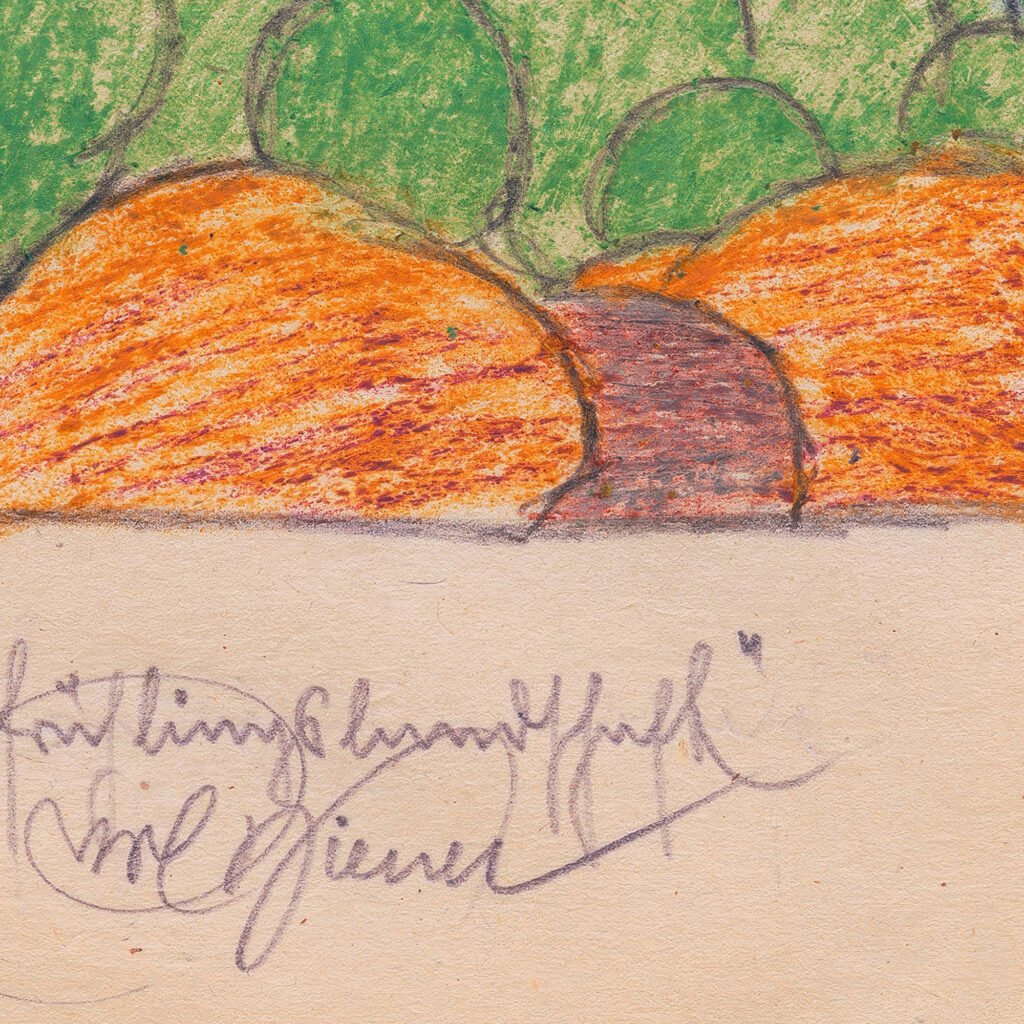 Frühlingslandschaft"
Karl Wiener